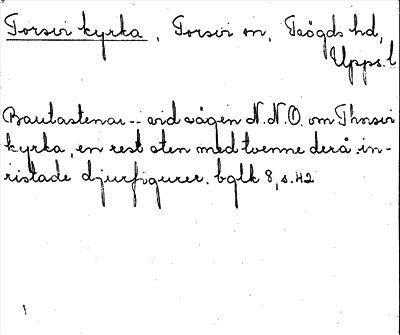 Torsvi kyrka, Torsvi sn, Trögds hd,
Upps. l
Bautastenar -- vid vägen N.N.O. om Thorsvi
kyrka, en rest sten med tvenne derå in-
ristade djurfigurer. bglk 8, s. 42